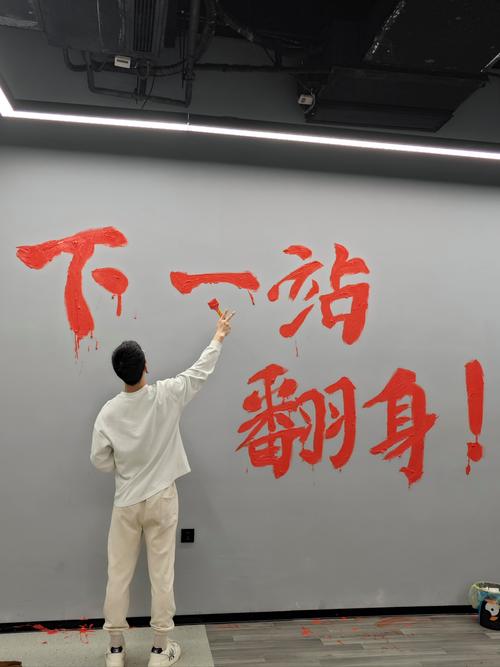 下一站
翻身!